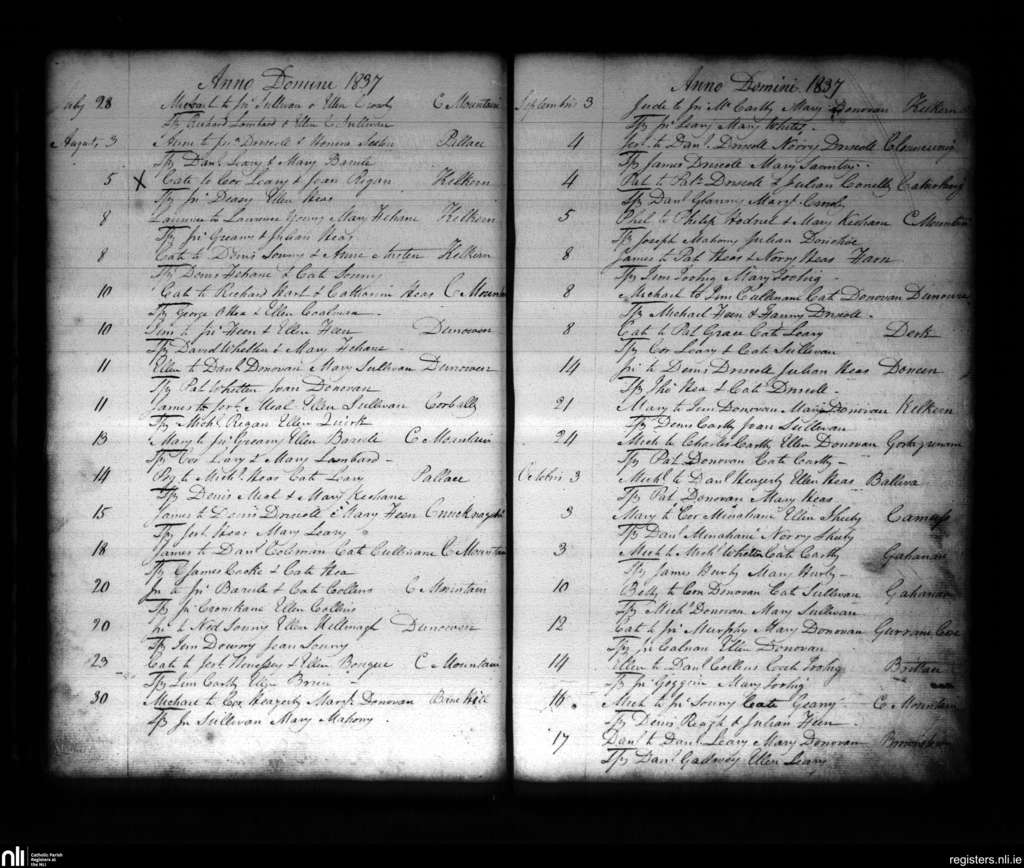 Anno Domini 1837
July 28 Michael to Jn Sullivan & Ellen Crowly C Mountain
Sps Richard Lombard & Ellen C Sullivan
August 3 to Driscoll & Honora Pallace
Sps Danl Leary & Mary Barrile
5 X Cate to Cor Leary & Joan Regan Kelkern
Sps Jn Deasy Ellen Heas
8 Laurence to Lawrence Young Mary Hehane Kelkern
Sps Jn Greany & Julian Heas
8 Cate to Denis Sonny & Anne Kelkern
Sps Denis Hehane & Cate Sonny
10 Cate to Richard Hart & Catharine Heas C Mountain
Sps George O Hea & Ellen
10 Jem to Jn Heen & Ellen Heen Dunowen
Sps David Whelten & Mary Hehane
11 Ellen to Danl Donovan Mary Sullivan Dunowen
Sps Pat Whelten Joan Donovan
11 James to Jery Meal Ellen Sullivan Corbally
Sps Michl Regan Ellen Quirk
13 Mary to Jn Greany Ellen Barrile C Mountain
Sps Cor Lary & Mary Lombard
14 to Michl Heas Cate Leary Pallace
Sps Denis & Mary Keohane
15 James to Denis Driscoll & Mary Heen
Sps Jery Heas Mary Leary
18 James to Danl Coleman Cate Cullinane C Mountain
Sps James Cooke & Cate Hea
20 Jn to Jn Barrile & Cate Collins C Mountain
Sps Jn Ellen Collins
20 Jn to Ned Sonny Ellen Dunowen
Sps Jem Jean Sonny
23 Cate to Jery Henessy & Ellen C Mountain
Sps Jem Carthy Ellen
30 Michael to Cor Heagerty Mary Donovan
Sps Jn Sullivan Mary Mahony
Anno Domini 1837
Septembris 3 Jude to Jn McCarthy Mary Donovan Kelkern
Sps Jn Leary Mary White
4 to Danl Driscoll Norry Driscoll
Sps James Driscoll Mary
4 Pat to Patk Driscoll & Julian
Sps Danl Mary
5 Phil to Philip Hodnet & Mary Keohane C Mountain
Sps Joseph Mahony Julian
8 James to Pat Heas & Norry Heas
Sps Jem Toohig Mary Toohig
8 Michael to Jem Cullinane Cate Donovan
Sps Michael Heen & Hanny Driscoll
8 Cate to Pat Grace Cate Leary
Sps Cor Leary & Cate Sullivan
14 Jn to Denis Driscoll Julian Heas Doneen
Sps Jno Hea & Cate Driscoll
21 Mary to Jem Donovan Mary Donovan Kelkern
Sps Denis Carthy Joan Sullivan
24 Mich to Charles Carthy Ellen Donovan
Sps Pat Donovan Cate Carthy
Octobris 3 Michl to Danl Heagerty Ellen Heas Balliva
Sps Pat Donovan Mary Heas
3 Mary to Cor Minahane Ellen Sheehy
Sps Danl Minahane Norry Sheehy
3 Mich to Michl Whelten Cate Carthy Gahanan
Sps James Hurly Mary Hurly
10 Betty to Con Donovan Cate Sullivan Gahanan
Sps Mich Donovan Mary Sullivan
12 Cate to Jn Murphy Mary Donovan
Sps Jn Calnan Ellen Donovan
14 Ellen to Danl Collins Cate Toohig
Sps Jn Goggin Mary Toohig
16 Mich to Jn Sonny Cate Geany C Mountain
Sps Denis & Julian Heen
17 Danl to Danl Leary Mary Donovan
Sps Danl Ellen Leary
nli Catholic Parish Registers at the NLI
registers.nli.ie